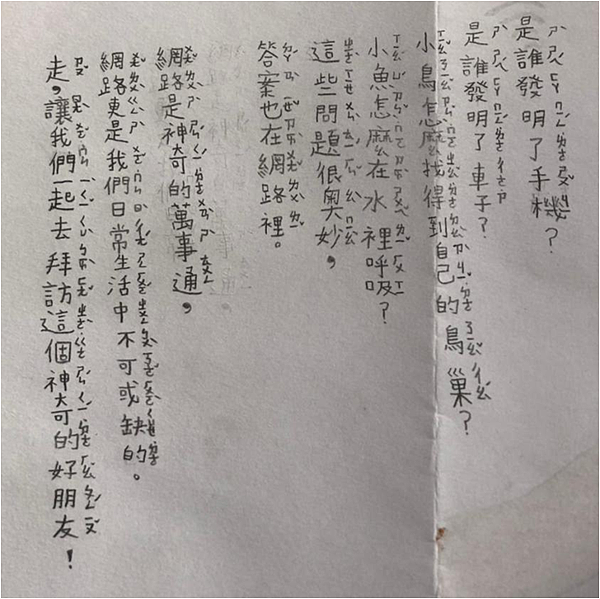 是誰發明了手機？
是誰發明了車子？
小鳥怎麼找得到自己的鳥巢？
小魚怎麼在水裡呼吸？
這些問題很奧妙，
答案也在網路裡。
網路是神奇的萬事通，
網路更是我們日常生活中不可或缺的。
走，讓我們一起去拜訪這個神奇的好朋友！